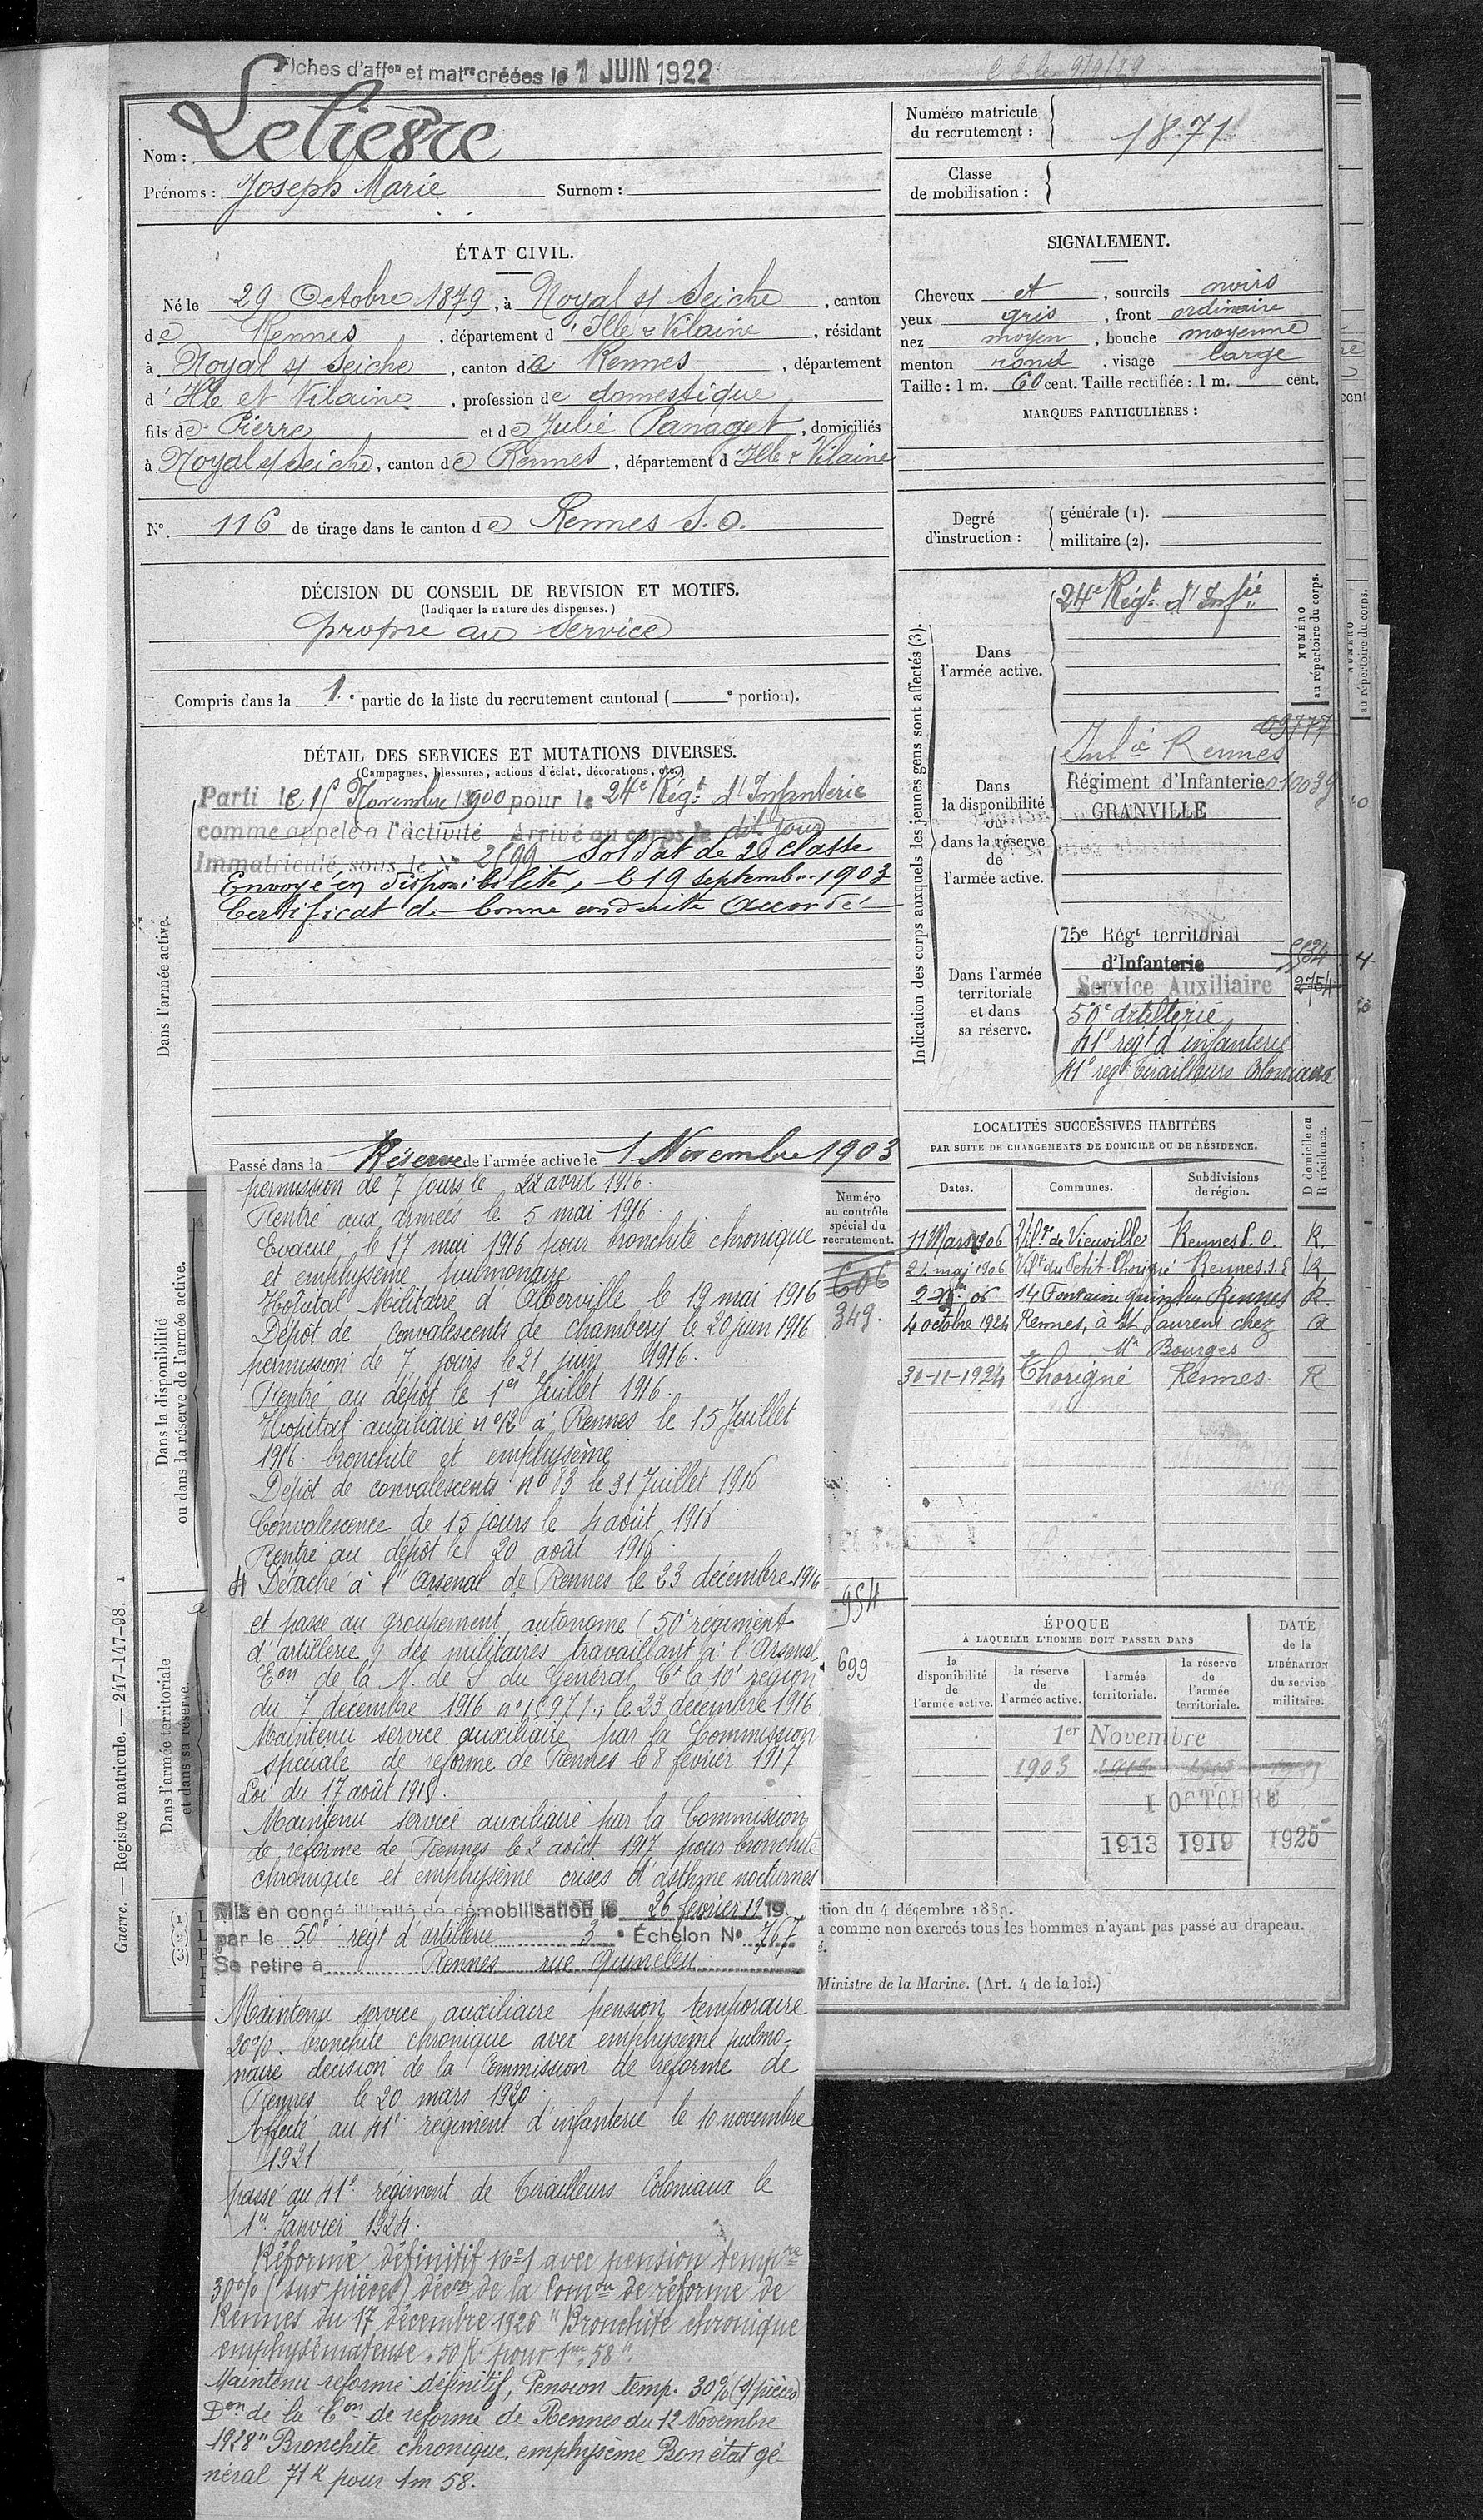 Fiches d'affon et matre créées le 1 JUIN 1922
Nom : Lelièvre
Prénoms : Joseph Marie Surnom :
Numéro matricule
du recrutement : 1871
Classe
de mobilisation :
ÉTAT CIVIL.
Né le 29 Octobre 1879, à Noyal s/ Seiche, canton
de Rennes, département d'Ille & Vilaine, résidant
à Noyal s/ Seiche, canton de Rennes, département
d'Ille et Vilaine, profession de domestique
fils de Pierre et de Julie Panaget, domiciliés
à Noyal s/ Seiche, canton de Rennes, département d'Ille & Vilaine
N° 116 de tirage dans le canton de Rennes S.O.
SIGNALEMENT.
Cheveux et, sourcils noirs
yeux gris, front ordinaire
nez moyen, bouche moyenne
menton rond, visage large
Taille : 1 m. 60 cent. Taille rectifiée : 1 m. cent.
MARQUES PARTICULIÈRES :
Degré
d'instruction :
générale (1).
militaire (2).
DÉCISION DU CONSEIL DE REVISION ET MOTIFS.
(Indiquer la nature des dispenses.)
propre au service
Compris dans la 1.e partie de la liste du recrutement cantonal ( e portion).
DÉTAIL DES SERVICES ET MUTATIONS DIVERSES.
(Campagnes, blessures, actions d'éclat, décorations, etc.)
Dans l'armée active.
Parti le 15 Novembre 1900 pour le 24e Régt d'Infanterie
comme appelé à l'activité Arrivé au corps le dit jour
Immatriculé sous le n° soldat de 2e classe
Envoyé en disponibilité, le 19 septembre 1903
Certificat de bonne conduite Accordé
Passé dans la Réserve de l'armée active le 1 Novembre 1903
Indication des corps auxquels les jeunes gens sont affectés (3).
NUMÉRO
au répertoire du corps.
Dans
l'armée active.
24e Régt d'Infie
Dans
la disponibilité
ou
dans la réserve
de
l'armée active.
09777
Infie Rennes
Régiment d'Infanterie 010039
GRANVILLE
Dans l'armée
territoriale
et dans
sa réserve.
75e Régt territorial
d'Infanterie
Service Auxiliaire
50e artillerie
41e regt d'infanterie
41e regt tirailleurs Coloniaux
LOCALITÉS SUCCESSIVES HABITÉES
PAR SUITE DE CHANGEMENTS DE DOMICILE OU DE RÉSIDENCE.
D domicile ou
R résidence.
Dates. Communes. Subdivisions
de région.
11 Mars 1906 de Vieuville Rennes S.O. R.
21 mai 1906 du Petit Thorigné Rennes S.E R
06 14 Fontaine Quineleu Rennes R.
4 octobre 1924 Rennes, à St Laurent chez R
Mr Bourges
30-11-1924 Thorigné Rennes R
Numéro
au contrôle
spécial du
recrutement.
606
349.
954
699
Dans la disponibilité
ou dans la réserve de l'armée active.
Dans l'armée territoriale
et dans sa réserve.
permission de 7 jours le 22 avril 1916.
Rentré aux armées le 5 mai 1916.
Evacué le 17 mai 1916 pour bronchite chronique
et emphysème pulmonaire
Hôpital Militaire d'Alberville le 19 mai 1916
Dépôt de convalescents de chambéry le 20 juin 1916
permission de 7 jours le 21 juin 1916.
Rentré au dépôt le 1er Juillet 1916.
Hôpital auxiliaire n° 12 à Rennes le 15 Juillet
1916 bronchite et emphysème
Dépôt de convalescents n° 83 le 31 Juillet 1916
Convalescence de 15 jours le 4 août 1916
Rentré au dépôt le 20 août 1916
Détaché à l'Arsenal de Rennes le 23 décembre 1916
et passé au groupement autonome (50e régiment
d'artillerie) des militaires travaillant à l'Arsenal
Eon de la N. de S. du Général Ct la 10e région
du 7 décembre 1916 ; le 23 décembre 1916
Maintenu service auxiliaire par la Commission
spéciale de réforme de Rennes le 8 février 1917
Loi du 17 août 1915.
Maintenu service auxiliaire par la Commission
de réforme de Rennes le 2 août 1917 pour bronchite
chronique et emphysème crises d'asthme nocturnes
Mis en congé illimité de démobilisation le 26 février 1919.
par le 50e régt d'artillerie 3e Échelon N° 767
Se retire à Rennes rue Quineleu
Maintenu service auxiliaire pension temporaire
20%. bronchite chronique avec emphysème pulmo-
naire décision de la Commission de réforme de
Rennes le 20 mars 1920
Affecté au 41e régiment d'infanterie le 10 novembre
1921
passé au 41e régiment de Tirailleurs Coloniaux le
1er Janvier 1924.
Réformé définitif N°1 avec pension tempre
30% (sur pièces) décon de la Comon de réforme de
Rennes du 17 décembre 1926 "Bronchite chronique
emphysémateuse. pour 1m,58".
Maintenu réformé définitif, Pension temp. 30% (s/pièces)
Don de la Con de réforme de Rennes du 12 Novembre
1928 "Bronchite chronique, emphysème Bon état gé
néral 71k pour 1m 58.
ÉPOQUE
À LAQUELLE L'HOMME DOIT PASSER DANS
la
disponibilité
de
l'armée active.
la réserve
de
l'armée active.
l'armée
territoriale.
la réserve
de
l'armée
territoriale.
DATE
de la
LIBÉRATION
du service
militaire.
1er Novembre
1903
1 OCTOBRE
1913 1919 1925
ction du 4 décembre 1889.
a comme non exercés tous les hommes n'ayant pas passé au drapeau.
Ministre de la Marine. (Art. 4 de la loi.)
(1)
(2)
(3)
Guerre. — Registre matricule. — 247-147-98. 1